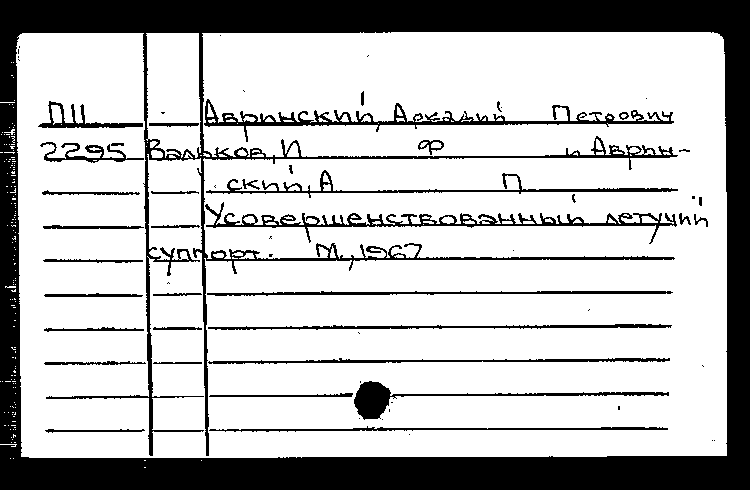 П11 Авринский, Аркадий Петрович
2295 Вальков, И Ф и Аврин-
ский, А П
Усовершенствованный летучий
суппорт. М., 1967